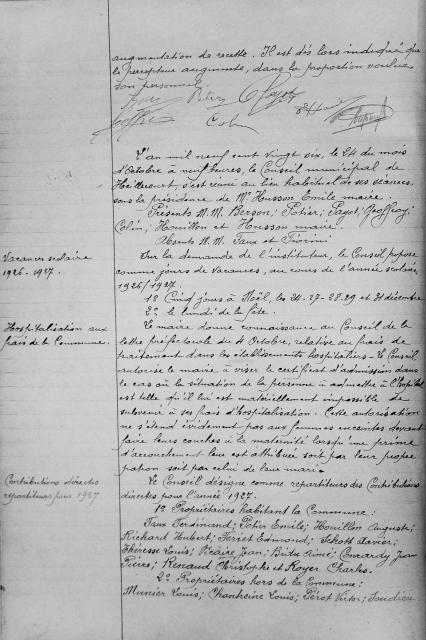 augmentation de recette. Il est dès lors indiqué que
le percepteur augmente, dans la proportion voulue
son personnel.
L'an mil neuf cent vingt six, le 24 du mois
d'Octobre à neuf heures, le Conseil municipal de
Heillecourt, s'est réuni au lien habituel de ses séances,
sous la présidence de Mr Husson Emile maire.
Présents M.M. Berson; Potier; Jayot; Geoffroy;
Colin; Houillon et Husson maire.
Absents M.M. Faux et Fiorini
Vacances scolaire
1926-1927.
Sur la demande de l'instituteur, le Conseil propose
comme jours de vacances, au cours de l'année scolaire
1926/1927.
1º Cinq jours à Noël, les 24-27-28-29 et 31 décembre
2º le lundi de la fête.
Hospitalisation aux
frais de la Commune.
Le maire donne connaissance au Conseil de la
lettre préfectorale du 4 Octobre, relative au frais de
traitement dans les établissements hospitaliers - le Conseil
autorise le maire à viser le certificat d'admission dans
le cas où la situation de la personne à admettre à l'hôpital
est telle qu'il lui est matériellement impossible de
subvenir à ses frais d'hospitalisation. Cette autorisation
ne s'étend évidement pas aux femmes enceintes devant
faire leurs couches à la maternité lorsqu'une prime
d'accouchement leur est attribuée soit par leur propre
patron soit par celui de leur mari.
Contributions directes
répartiteurs pour 1927
Le Conseil désigne comme répartiteurs des Contributions
directes pour l'année 1927.
1º Propriétaires habitant la Commune:
Faux Ferdinand; Potier Emile; Houillon Auguste;
Richard Hubert; Edmond; Schott Xavier;
Théresse Louis; Jean; Aimé; Conrardy Jean
Pierre; Renaud Christophe et Royer Charles.
2º Propriétaires hors de la Commune:
Munier Louis; Chantreine Louis; Pérot Victor;